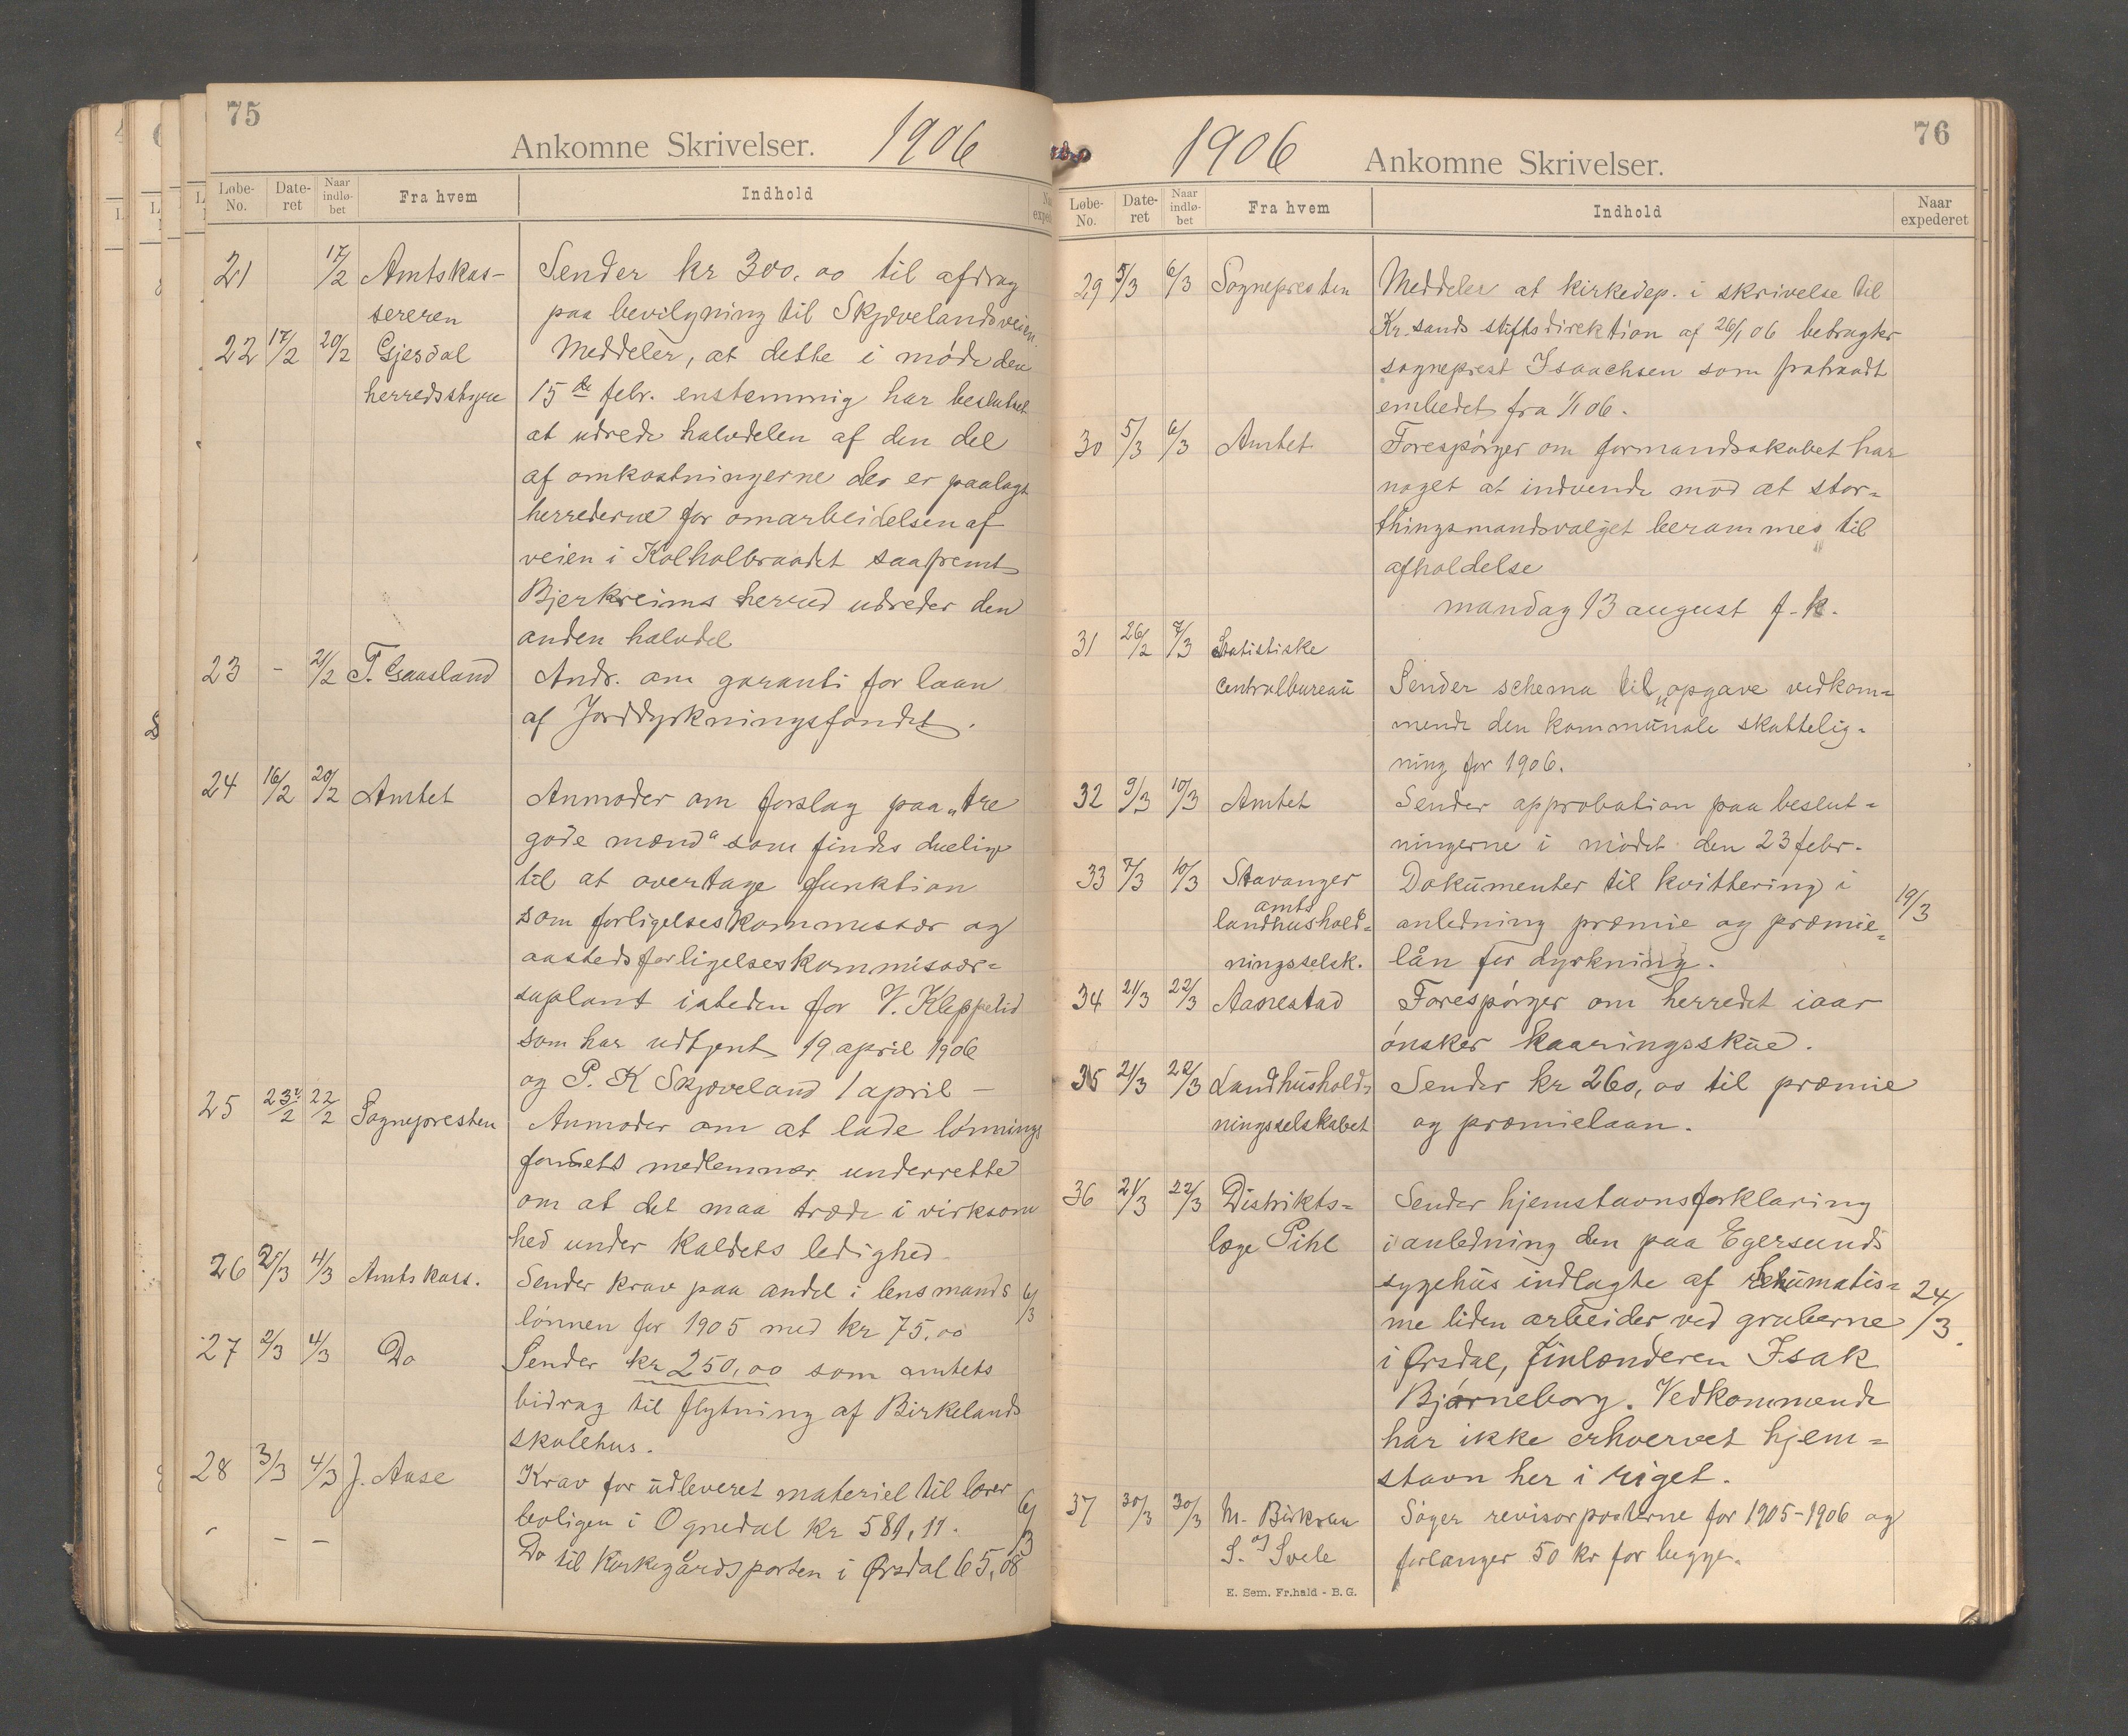 75
Ankomne Skrivelser. 1906
Løbe-No. Date-ret Naar indlø-bet Fra hvem Indhold
21 17/2 Amtskas- Sender kr 300.00 til afdrag
sereren paa bevilgning til Skjævelandsveien.
22 17/2 20/2 Gjesdal Meddeler, at dette i møde den
herredsstyre 15de febr. enstemmig har besluttet
at udrede halvdelen af den del
af omkostningerne der er paalagt
herrederne for omarbeidelsen af
veien i Kolholbraadet saafremt
Bjerkreims herred udreder den
anden halvdel
23 - 21/2 T. Gaasland Andr. om garanti for laan
af Jorddyrkningsfondet.
24 16/2 20/2 Amtet Anmoder om forslag paa „tre
gode mænd“ som findes duelige
til at overtage funktion
som forligelseskommissær og
aastedsforligelseskommissær-
suplant isteden for V. Kleppelid
som har udtjent 19 april 1906
og P. K Skjæveland 1 april -
25 23/2 22/2 Sognepresten Anmoder om at lade lønnings
fondets medlemmer underrette
om at det maa træde i virksom
hed under kaldets ledighed
26 2/3 4/3 Amtskass. Sender krav paa andel i lensmands 6/3
lønnen for 1905 med kr 75.00
27 2/3 4/3 Do Sender kr 250,00 som amtets
bidrag til flytning af Birkelands
skolehus.
28 3/3 4/3 J. Aase Krav for udleveret materiel til lærer
boligen i Ognedal kr 581,11. 6/3
- - - Do til Kirkegårdsporten i Ørsdal 65,08
76
1906 Ankomne Skrivelser.
Løbe-No. Date-ret Naar indlø-bet Fra hvem Indhold Naar expederet
29 5/3 6/3 Sognepresten Meddeler at kirkedep. i skrivelse til
Kr.sands stiftsdirektion af 26/1 06 betragter
sogneprest Isaachsen som fratraadt
embedet fra 1/1 06.
30 5/3 6/3 Amtet Forespørger om formandsskabet har
noget at indvende mod at stor-
thingsmandsvalget berammes til
afholdelse
mandag 13 august f.k.
31 26/2 7/3 Statistiske
Centralbureau Sender schema til opgave vedkom-
mende den kommunale skattelig-
ning for 1906.
32 9/3 10/3 Amtet Sender approbation paa beslut-
ningerne i mødet den 23 febr.
33 7/3 10/3 Stavanger Dokumenter til kvittering i
amts
landhushold- anledning præmie og præmie- 19/3
ningsselsk. lån for dyrkning.
34 21/3 22/3 Aanestad Forespørger om herredet iaar
ønsker kaaringsskue.
35 21/3 22/3 Landhushold- Sender kr 260,00 til præmie
ningsselskabet og præmielaan.
36 21/3 22/3 Distrikts- Sender hjemstavnsforklaring
læge Pihl i anledning den paa Egersunds
sygehus indlagte af Rehumatis- 24/3.
me liden arbeider ved gruberne
i Ørsdal, finlænderen Isak
Bjørneborg. Vedkommende
har ikke erhvervet hjem-
stavn her i riget.
37 30/3 30/3 M. Birkeland Søger revisorposterne for 1905-1906 og
og S. Svele forlanger 50 kr for begge.
E. Sem. Fr.hald - B.G.